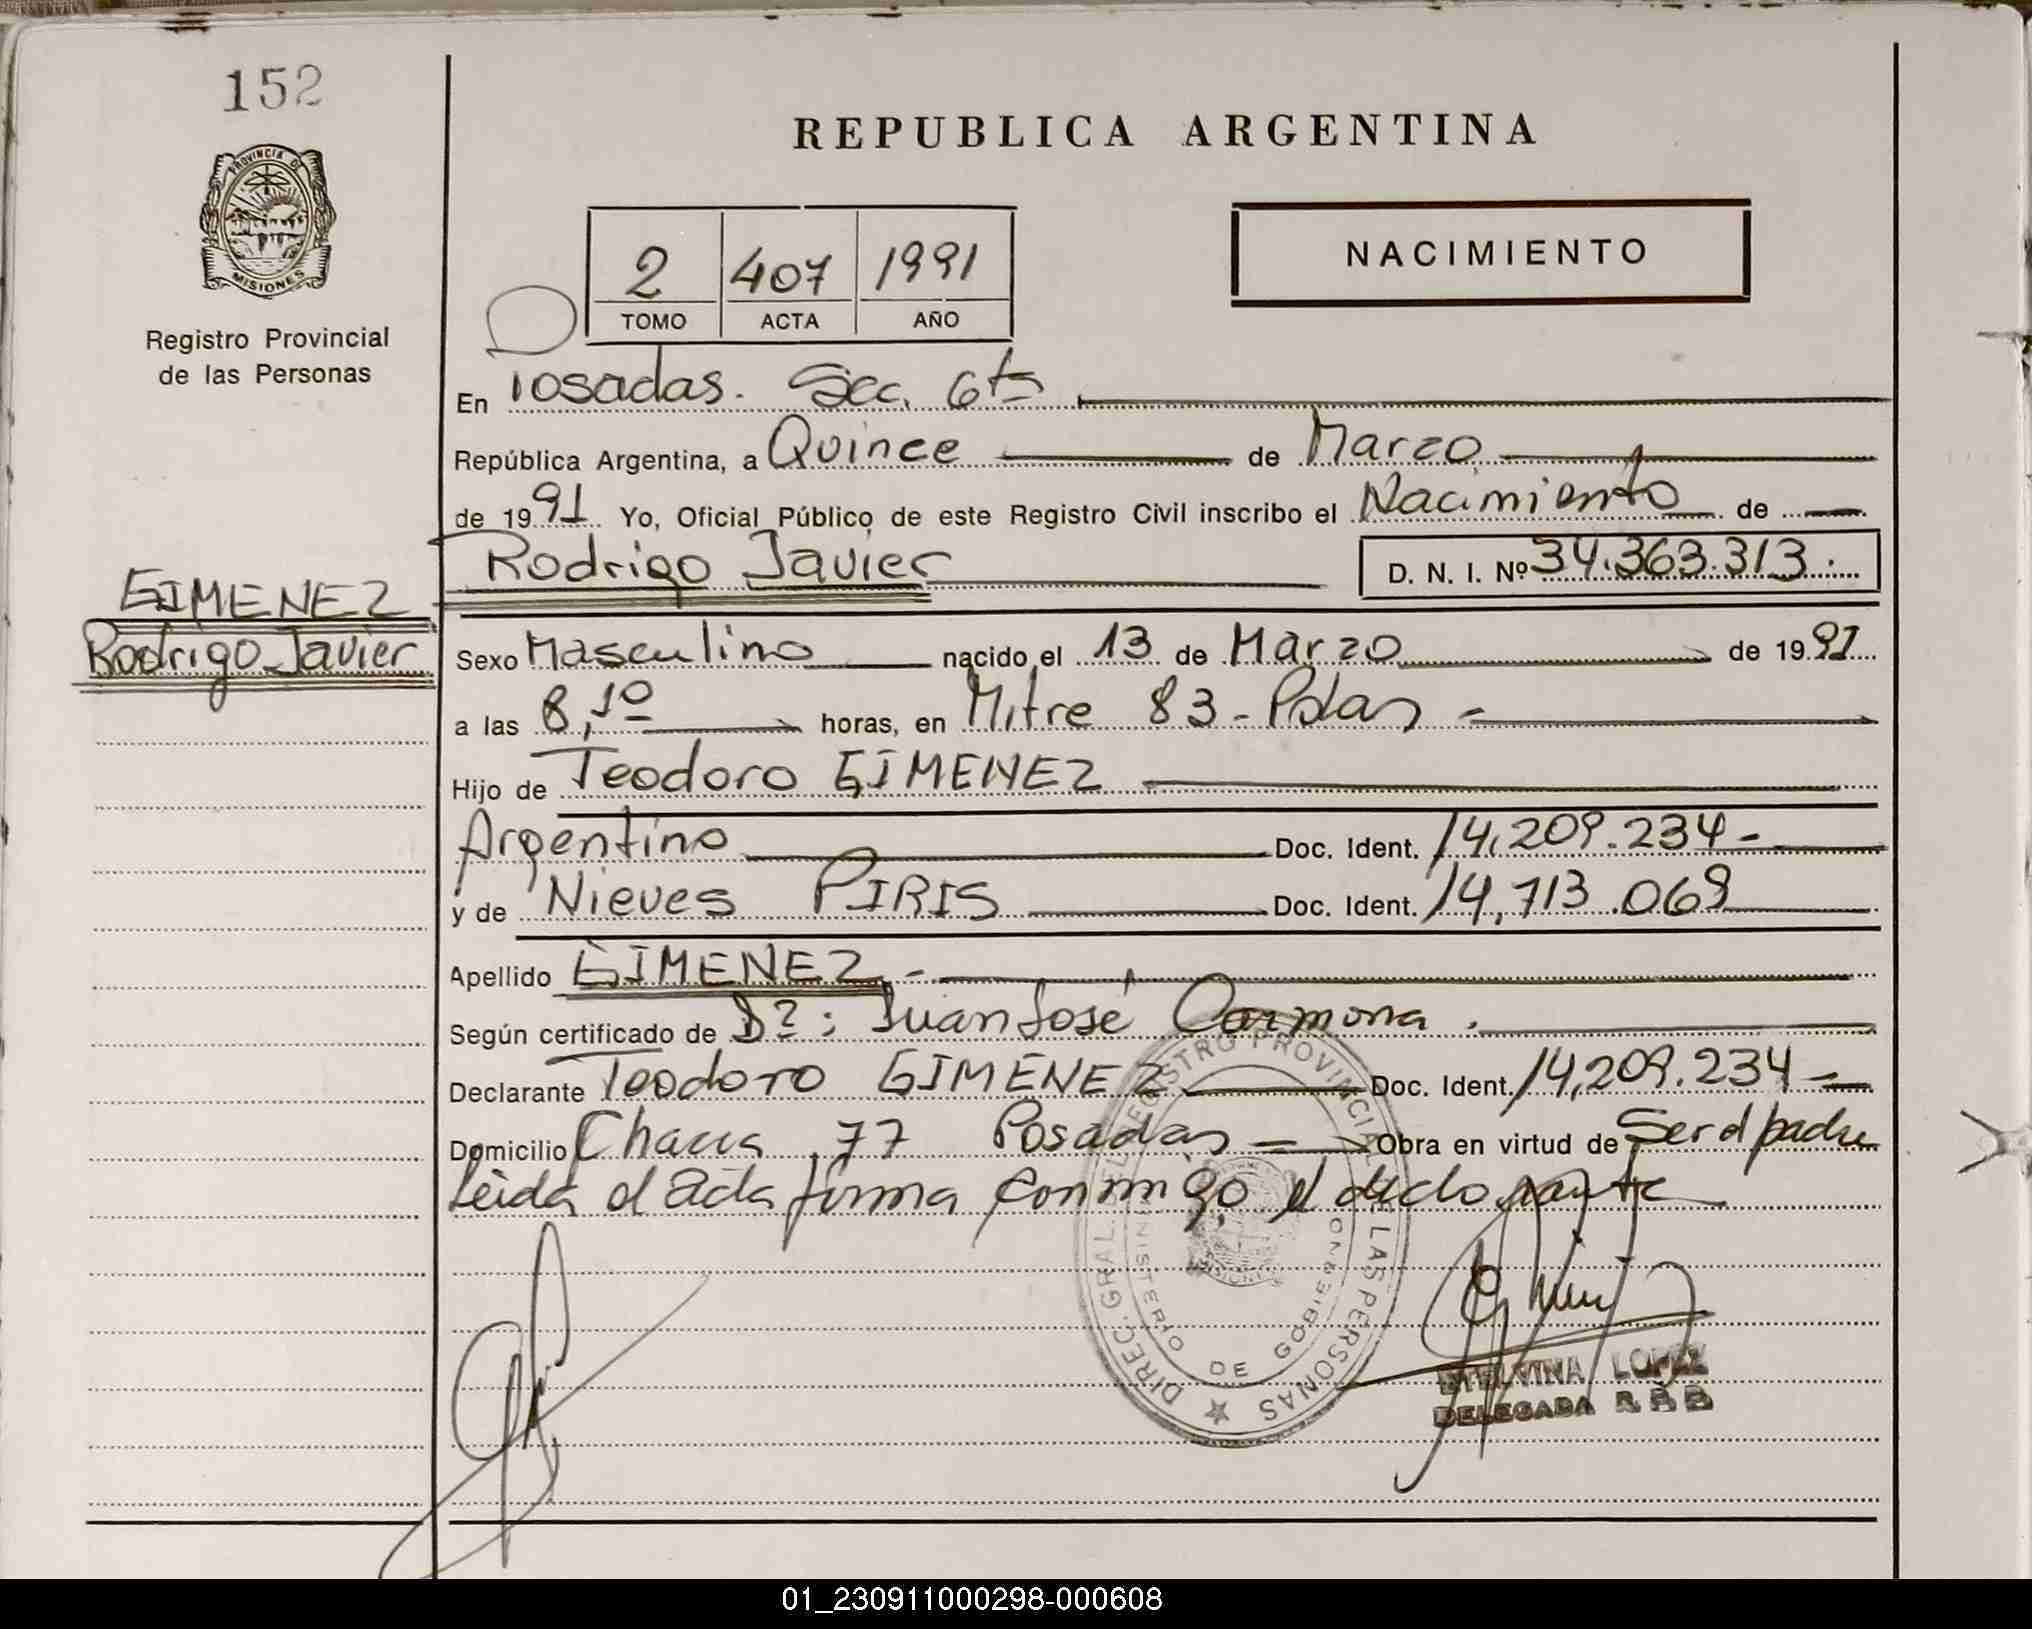 152
PROVINCIA DE
MISIONES
Registro Provincial
de las Personas
REPUBLICA ARGENTINA
2 407 1991
TOMO ACTA AÑO
NACIMIENTO
En Posadas. Sec. 6ta
República Argentina, a Quince de Marzo
de 1991 Yo, Oficial Público de este Registro Civil inscribo el Nacimiento de
Rodrigo Javier D. N. I. Nº 34.363.313.
GIMENEZ
Rodrigo Javier
Sexo Masculino nacido el 13 de Marzo de 1991
a las 8,10 horas, en Mitre 83 - Pdas -
Hijo de Teodoro GIMENEZ
Argentino Doc. Ident. 14.209.234-
y de Nieves PIRIS Doc. Ident. 14.713.069
Apellido GIMENEZ.-
Según certificado de Dr: Juan José Carmona.
Declarante Teodoro GIMENEZ Doc. Ident. 14.209.234-
Domicilio Chacra 77 Posadas Obra en virtud de Ser el padre
Leída el acta firma conmigo el declarante
DIREC. GRAL. DEL REGISTRO PROVINCIAL DE LAS PERSONAS
MINISTERIO DE GOBIERNO
MISIONES
ETELVINA LOPEZ
DELEGADA
01_230911000298-000608